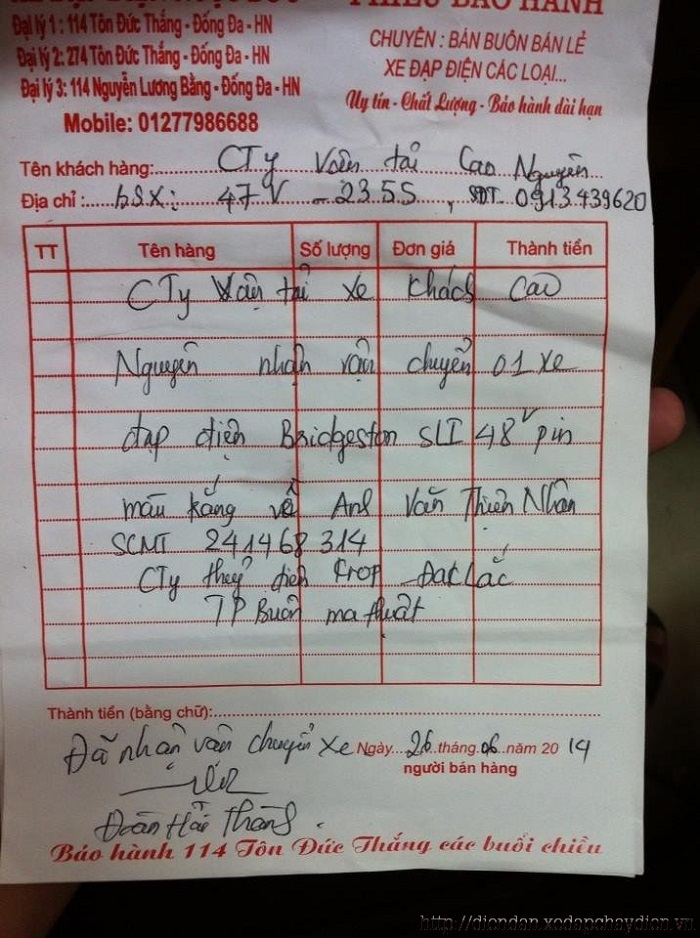 PHIẾU BẢO HÀNH
Đại lý 1 : 114 Tôn Đức Thắng - Đống Đa - HN
Đại lý 2: 274 Tôn Đức Thắng - Đống Đa - HN
Đại lý 3: 114 Nguyễn Lương Bằng - Đống Đa - HN
Mobile: 01277986688
CHUYÊN : BÁN BUÔN BÁN LẺ
XE ĐẠP ĐIỆN CÁC LOẠI...
Uy tín - Chất Lượng - Bảo hành dài hạn
Tên khách hàng: CTy Vận tải Cao Nguyên
Địa chỉ : b.S.X: 47V - 2355, SĐT 0913.439620
TT Tên hàng Số lượng Đơn giá Thành tiền
CTy Vận tải xe khách Cao
Nguyên nhận vận chuyển 01 xe
đạp điện Bridgeston SLI 48v pin
màu trắng về Anh Văn Thiện Nhân
SCMT 241468314
CTy thuỷ điện Krop Đat Lắc
TP Buôn ma thuật
Thành tiền (bằng chữ):
Đã nhận vận chuyển xe Ngày 26 tháng 06 năm 2014
người bán hàng
Đoàn Hải Thăng
Bảo hành 114 Tôn Đức Thắng các buổi chiều
http://diendan.xedapchaydien.vn